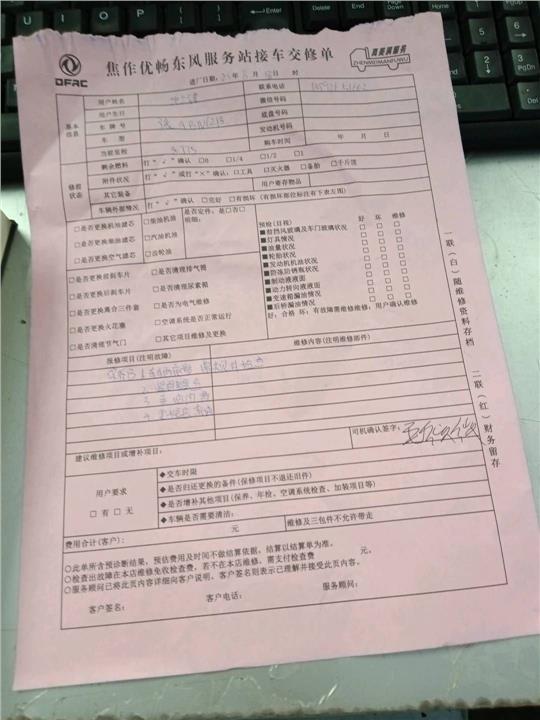 DFAC
焦作优畅东风服务站接车交修单
真美满服务
ZHENMEIMANFUWU
进厂日期: 年 月 日 时
基本信息
用户姓名
联系电话
用户生日
微信号码
车牌号
底盘号码
车型
发动机号码
当前里程
购车时间 年 月 日
修前状态
剩余燃料 打"√"确认 □0 □1/4 □1/2 □1
附件状况 打"√"或打"×"确认:□工具 □灭火器 □备胎 □千斤顶
其它装备 用户寄存物品
车辆外观情况 打"√"确认 □完好 □有损坏(有损坏部位标注有下表左图)
□是否更换机油滤芯 □柴油机油
□是否更换柴油滤芯 □汽油机油
□是否更换空气滤芯 □齿轮油
是否定件,是□否□
明细:
□是否更换前刹车片 □是否清理排气筒
□是否更换后刹车片 □是否清理尿素箱
□是否更换离合三件套 □是否为电气维修
□是否更换火花塞 □空调系统是否正常运行
□是否清理节气门 □其它项目维修及更换
预检(目视) 好 坏 维修
■前挡风玻璃及车门玻璃状况 □ □ □
■灯具情况 □ □ □
■油量状况 □ □ □
■轮胎状况 □ □ □
■发动机机油状况 □ □ □
■防冻冷锈瓶状况 □ □ □
■制动液液面 □ □ □
■动力转向液液面 □ □ □
■变速箱漏油情况 □ □ □
■后桥漏油情况 □ □ □
好:合格 坏:有故障需维修维修:用户确认维修
报修项目(注明故障)
维修内容(注明维修部件)
司机确认签字:
建议维修项目或增补项目:
用户要求
□有 □无
◆交车时限
◆是否归还更换的备件(保修项目不退还旧件)
◆是否增补其他项目(保养、年检、空调系统检查、加装项目等)
◆车辆是否需要清洁:
费用合计(客户): 元
维修及三包件不允许带走
○此单所含预诊断结果,预估费用及时间不做结算依据,结算以结算单为准。
○检查出故障在本店维修免收检查费,若不在本店维修,需支付检查费 元。
○服务顾问已将此页内容详细向客户说明、客户签名则表示已理解并接受此页内容。
客户签名: 客户电话: 服务顾问:
一联(白)随维修资料存档
二联(红)财务留存